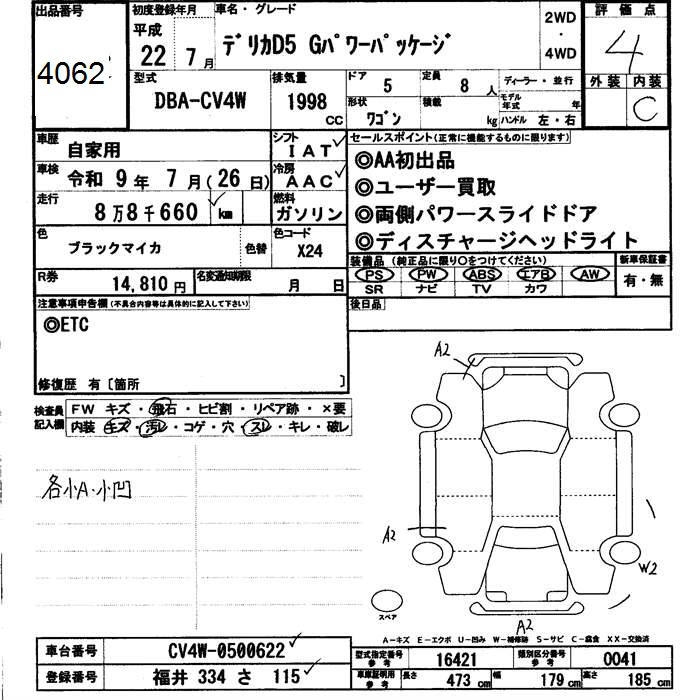 出品番号
4062
初度登録年月
平成
22 7月
車名・グレード
デリカD5 Gパワーパッケージ
2WD
・
4WD
評価点
4
外装 内装
C
型式
DBA-CV4W
排気量
1998
CC
ドア
5
定員
8人
形状
ワゴン
積載
kg
ディーラー・並行
モデル年式 年
ハンドル 左・右
車歴
自家用
シフト
IAT
車検
令和 9年 7月(26日)
冷房
AAC
走行
8万8千660 km
燃料
ガソリン
色
ブラックマイカ
色替
色コード
X24
R券
14,810円
名変通知期限
月 日
セールスポイント(正常に機能するものに限ります)
◎AA初出品
◎ユーザー買取
◎両側パワースライドドア
◎ディスチャージヘッドライト
装備品(純正品に限り○をつけてください)
PS PW ABS エアB AW
SR ナビ TV カワ
新車保証書
有・無
後日品
注意事項申告欄(不具合内容等は具体的に記入して下さい)
◎ETC
修復歴 有〔箇所 〕
検査員記入欄
FW キズ・飛石・ヒビ割・リペア跡・×要
内装 キズ・汚レ・コゲ・穴・スレ・キレ・破レ
各小A・小凹
A2
A2
W2
スペア
A2
A-キズ E-エクボ U-凹み W-補修跡 S-サビ C-腐食 XX-交換済
車台番号
CV4W-0500622
登録番号
福井 334 さ 115
型式指定番号
参考
16421
類別区分番号
参考
0041
車庫証明用
参考
長さ 473cm 幅 179cm 高さ 185cm